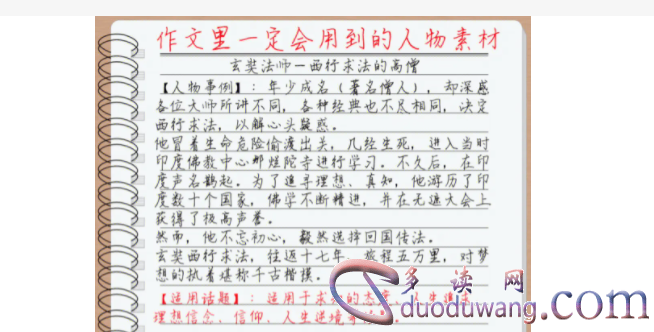 作文里一定会用到的人物素材
玄奘法师一西行求法的高僧
【人物事例】：年少成名（著名僧人），却深感
各位大师所讲不同，各种经典也不尽相同，决定
西行求法，以解心头疑惑。
他冒着生命危险偷渡出关，几经生死，进入当时
印度佛教中心那烂陀寺进行学习。不久后，在印
度声名鹊起。为了追寻理想、真知，他游历了印
度数十个国家，佛学不断精进，并在无遮大会上
获得了极高声誉。
然而，他不忘初心，毅然选择回国传法。
玄奘西行求法，往返十七年，旅程五万里，对梦
想的执着堪称千古楷模。
【适用话题】：适用于求知的态度、人生追求、
理想信念、信仰、人生逆境
多读网
duoduwang.com